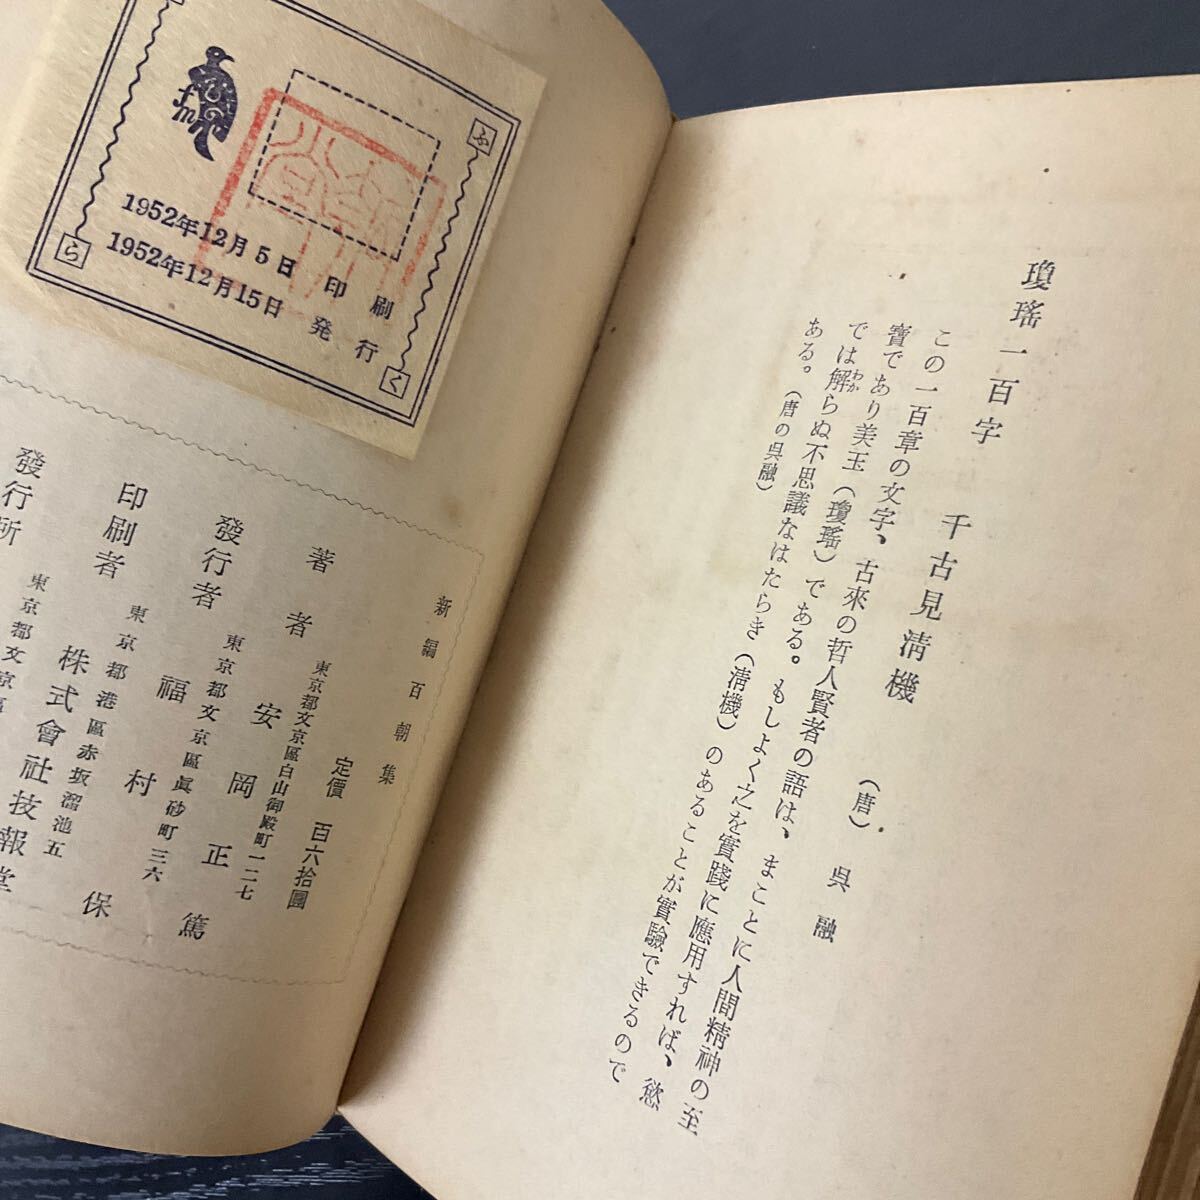 瓊瑤一百字　千古見淸機
(唐)　呉融
この一百章の文字、古來の哲人賢者の語は、まことに人間精神の至
寶であり美玉（瓊瑤）である。もしよく之を實踐に應用すれば、慾
では解らぬ不思議なはたらき（淸機）のあることが實驗できるので
わか
ある。（唐の呉融）
fm
ふ
く
ら
1952年12月5日　印刷
1952年12月15日　発行
新編百朝集
定價　百六拾圓
東京都文京區白山御殿町一二七
著者　安岡正篤
東京都文京區眞砂町三六
發行者　福村保
東京都港區赤坂溜池五
印刷者　株式會社技報堂
東京都文京區
發行所